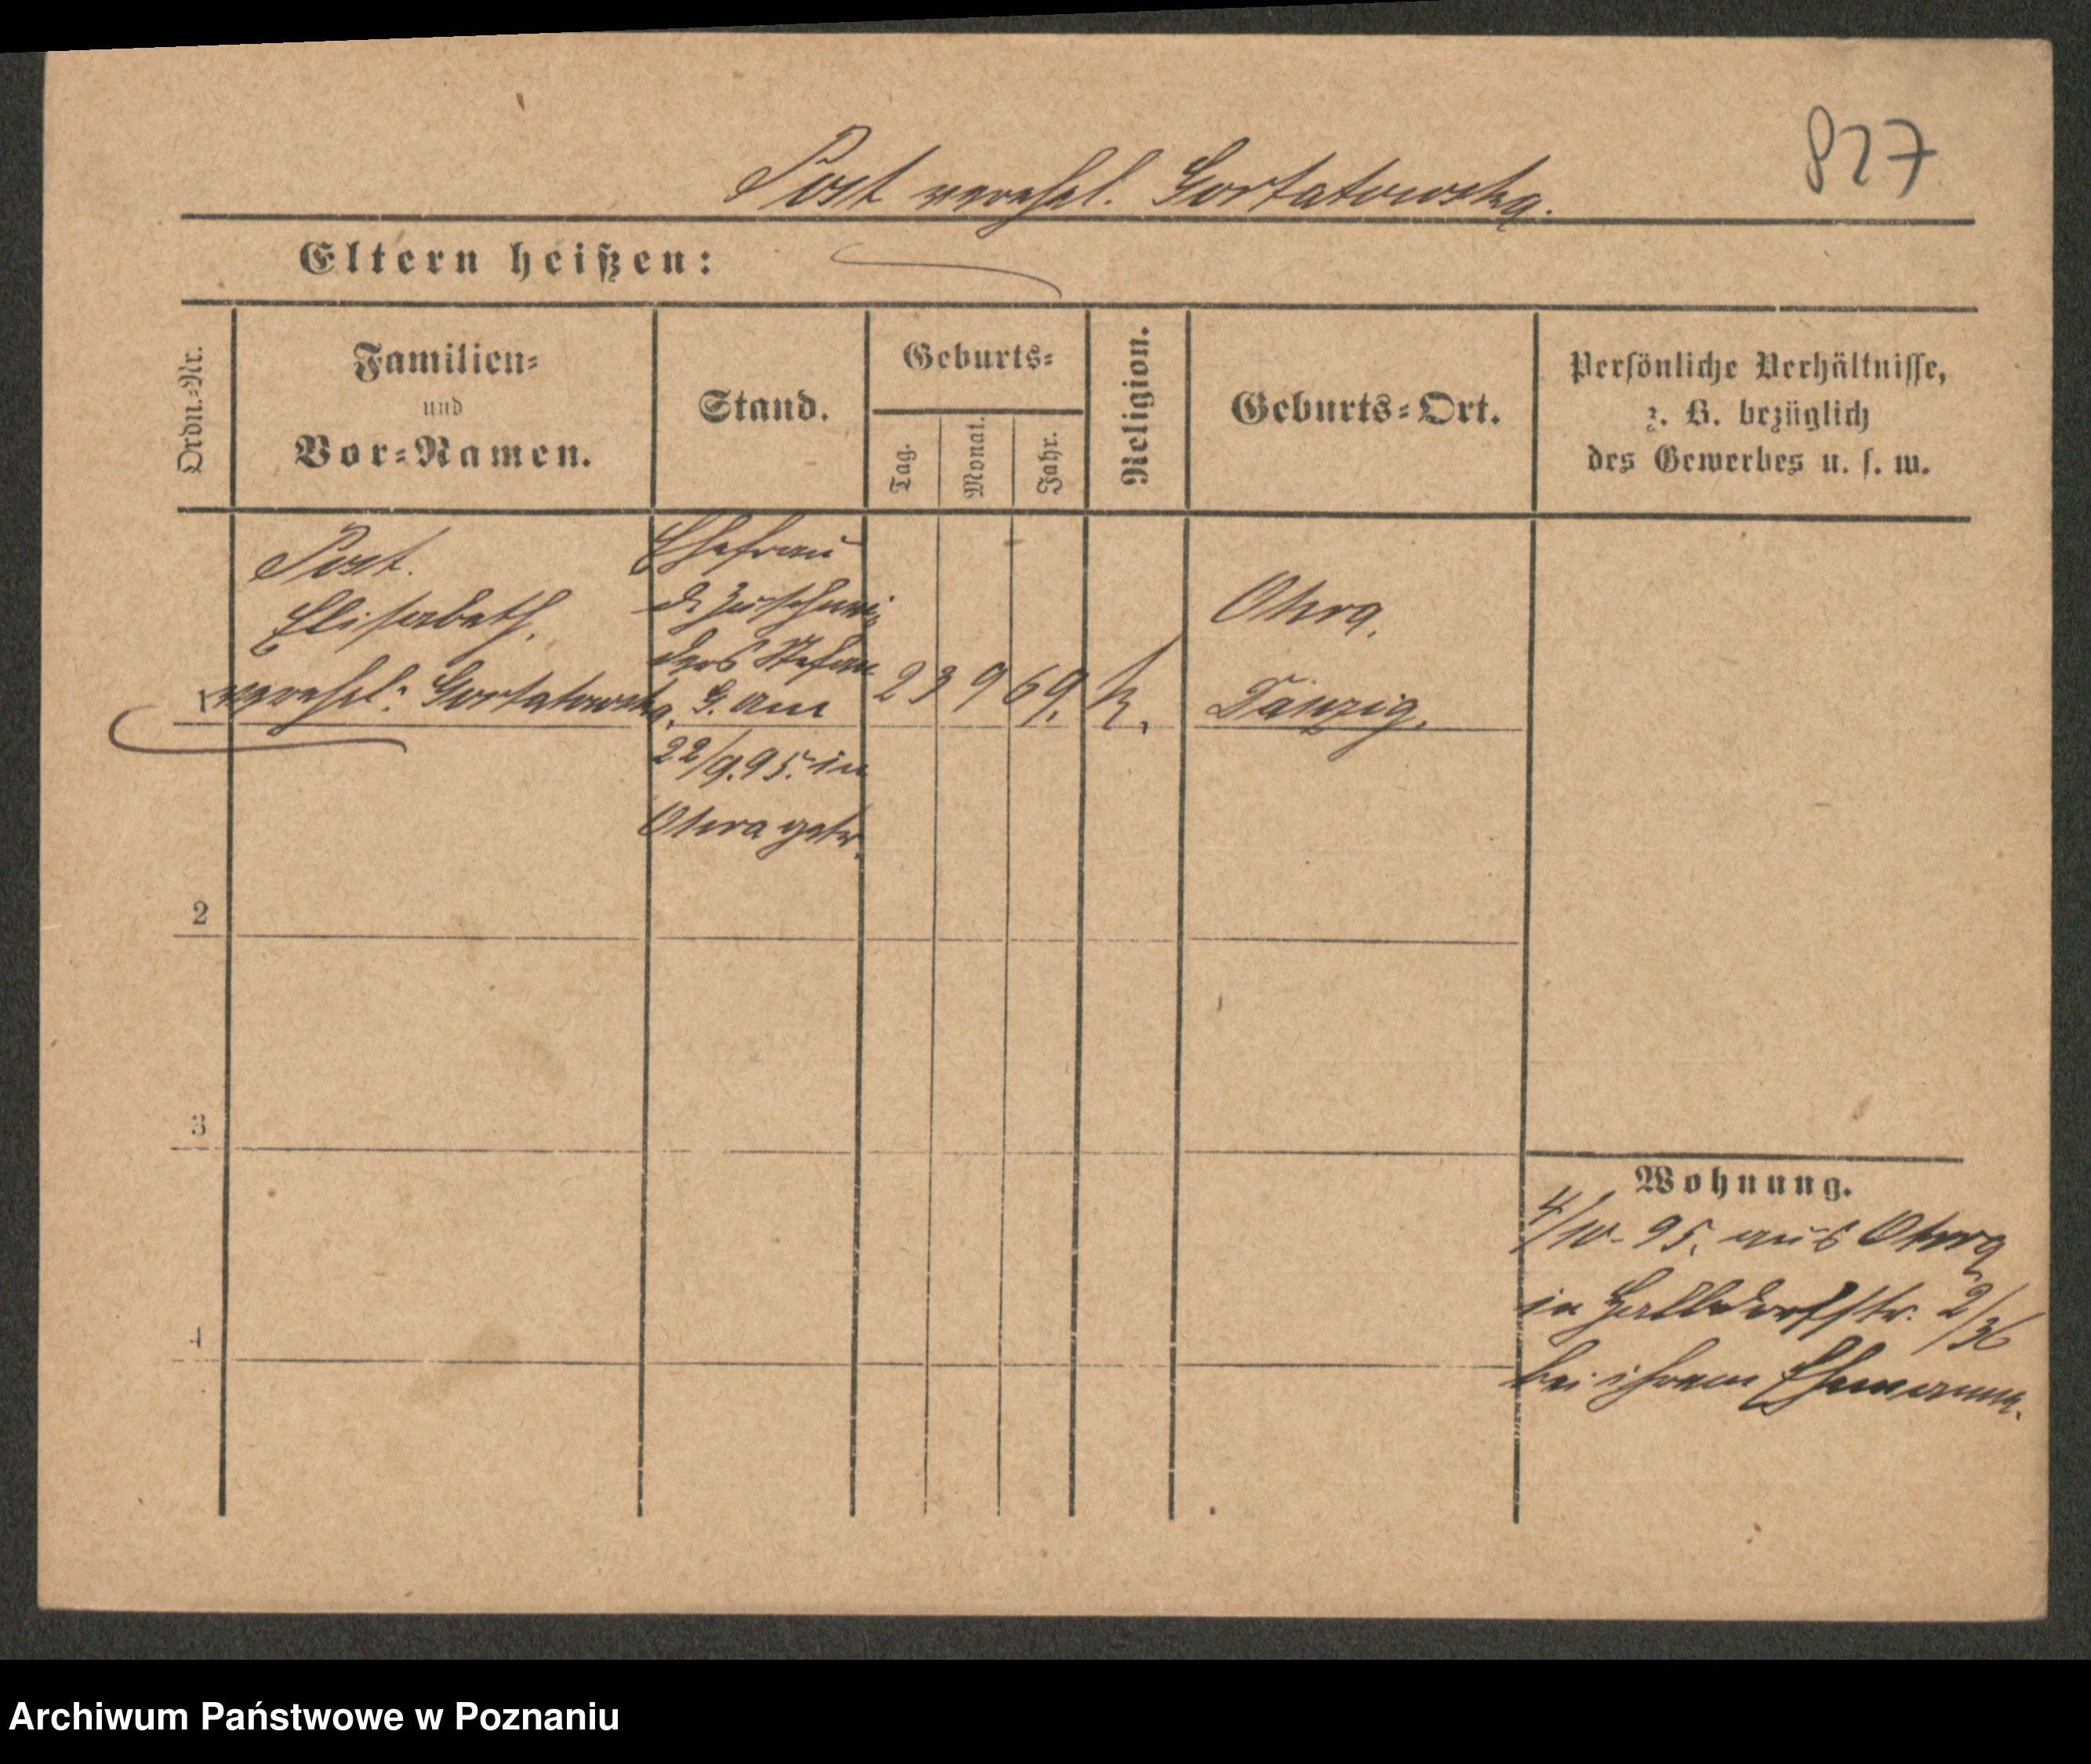 827
Post verehel. Gortatowska.
Eltern heißen:
Ordn.-Nr.
Familien-
und
Vor-Namen.
Stand.
Geburts-
Tag.
Monat.
Jahr.
Religion.
Geburts-Ort.
Persönliche Verhältnisse,
z. B. bezüglich
des Gewerbes u. s. w.
Post.
Elisabeth.
verehel. Gortatowska.
Ehefrau
d. Zuschnei-
ders Stefan
G. am
22/9.95. in
Ohra getr.
23 9 69. k.
Ohra.
Danzig.
2
3
4
Wohnung.
4/10. 95. aus Ohra
in Halbdorfstr. 2/36
bei ihrem Ehemann.
Archiwum Państwowe w Poznaniu